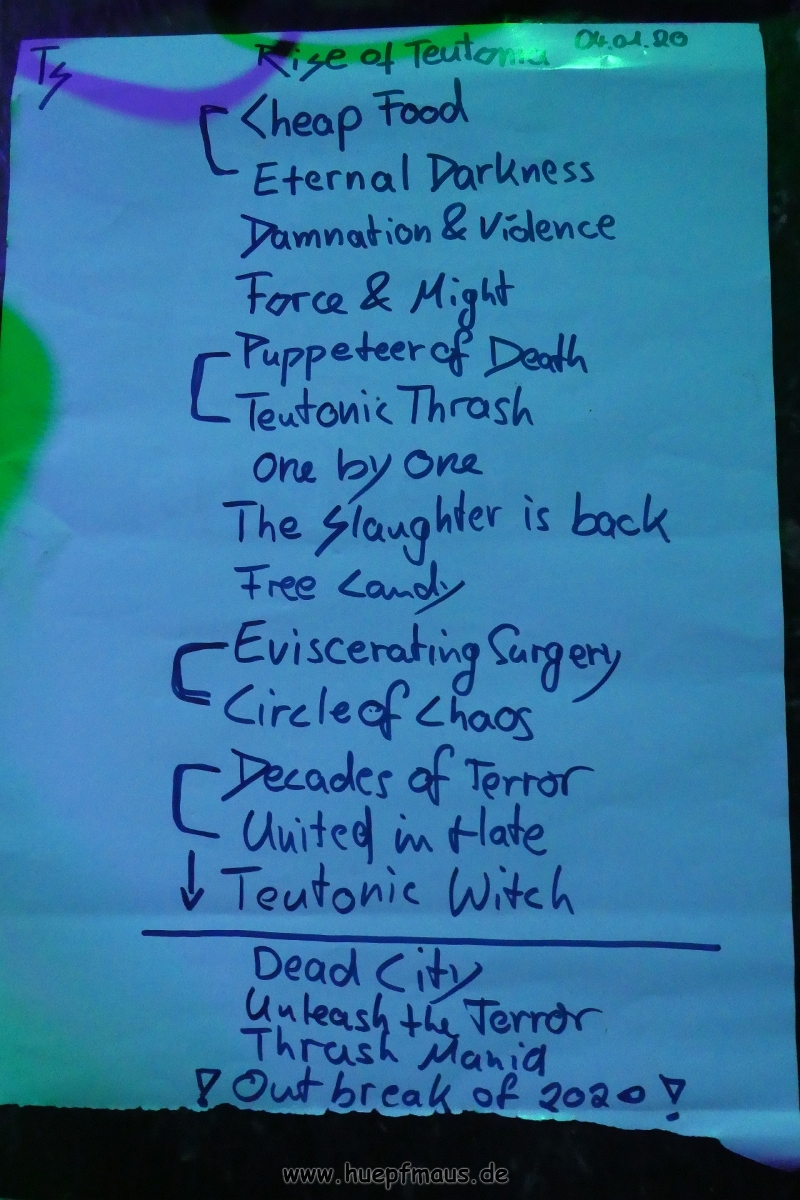 TS
Rise of Teutonia 04.01.20
Cheap Food
Eternal Darkness
Damnation & Violence
Force & Might
Puppeteer of Death
Teutonic Thrash
One by One
The Slaughter is back
Free Candy
Eviscerating Surgery
Circle of Chaos
Decades of Terror
United in Hate
↓ Teutonic Witch
Dead City
Unleash the Terror
Thrash Mania
! Outbreak of 2020 !
www.huepfmaus.de